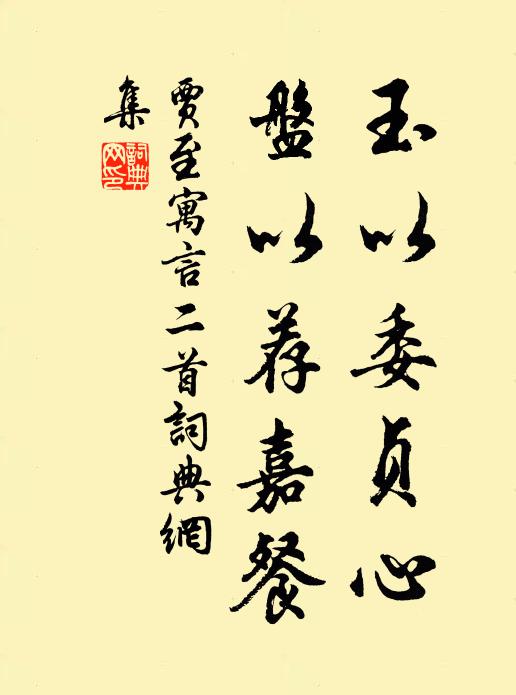 玉以委贞心
盤以荐嘉餐
賈至寓言二首詞典網
集
詞典
网印